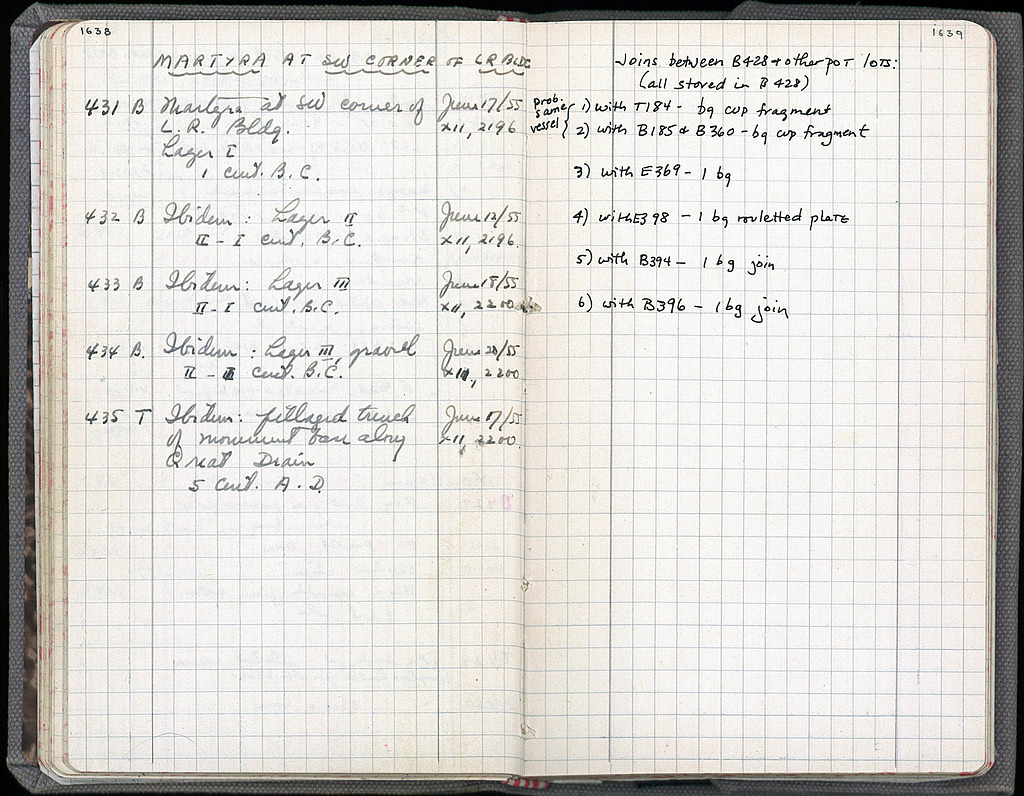 1638
MARTYRA AT SW CORNER OF LR BLDG
431 B Martyra at SW corner of June 17/55
L.R. Bldg. XII, 2196
Lager I
1 cent. B.C.
432 B Ibidem: Lager II June 12/55
II - I cent. B.C. XII, 2196.
433 B Ibidem: Lager III June 18/55
II - I cent. B.C. XII, 2200
434 B. Ibidem: Lager III, gravel June 20/55
II - I cent. B.C. XII, 2200
435 T Ibidem: pillaged trench June 17/55
of monument base along XII, 2200
Great Drain
5 cent. A.D.
1639
Joins between B428 & other POT lots:
(all stored in B 428)
prob. same vessel { 1) with T184 - bg cup fragment
2) with B185 & B360 - bg cup fragment
3) with E369 - 1 bg
4) with E398 - 1 bg rouletted plate
5) with B394 - 1 bg join
6) with B396 - 1 bg join